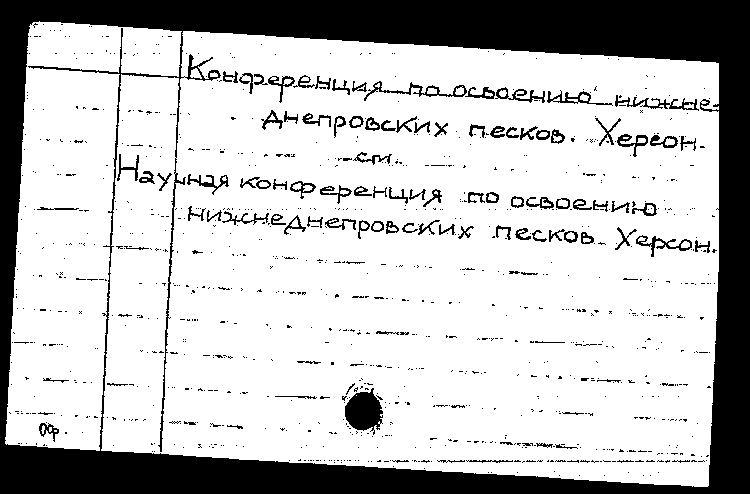 Конференция по освоению нижне-
днепровских песков. Херсон.
см.
Научная конференция по освоению
нижнеднепровских песков. Херсон.